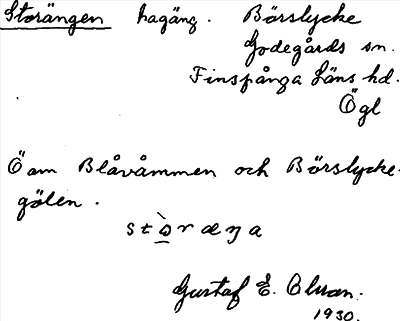 Storängen hagäng. Börslycke
Godegårds sn.
Finspånga Läns hd.
Ögl
Ö om Blåvåmmen och Börslycke-
gölen.
stòræŋa
Gustaf E. Olsson.
1930.